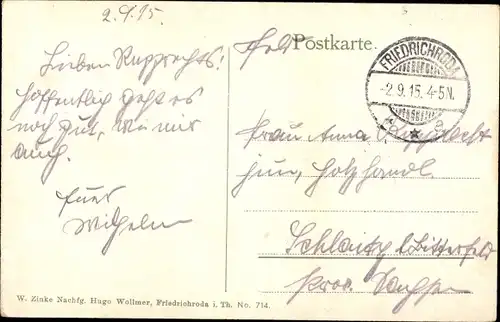 2.9.15.
Lieben Rupprechts!
Hoffentlich geht es
noch gut, wie mir
auch.
Euer
Wilhelm
Feld Postkarte.
FRIEDRICHRODA
-2.9.15. 4-5N.
* a
Frau Anna Rupprecht
jun., Holzhandl.
Schlaitz b/Bitterfeld
Prov. Sachsen
W. Zinke Nachfg. Hugo Wollmer, Friedrichroda i. Th. No. 714.